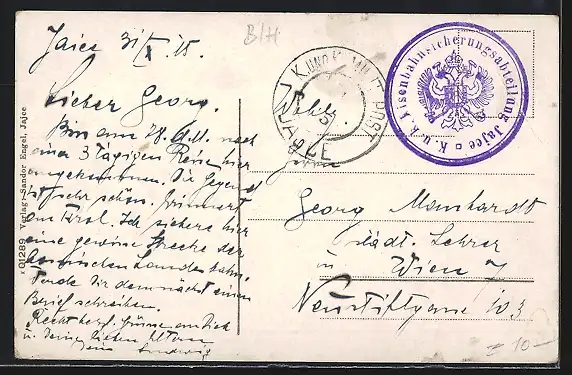 Jajce 31/X. 15.
Lieber Georg.
Bin am 28. d. M. nach
einer 3 tägigen Reise hier
angekommen. Die Gegend
ist sehr schön. Erinnert
an Tirol. Ich sichere hier
eine gewisse Strecke der
bosnischen Landesbahn.
Werde Dir demnächst einen
Brief schreiben.
Recht herzl. Grüsse an Dich
u. Deine lieben Eltern
Dein Ludwig
B/H
K. UND K. MILIT. POST
JAJCE
K. u. k. Eisenbahnsicherungsabteilung Jajce
Wohlg.
Herrn
Georg Manhardt
städt. Lehrer
in Wien 7
Neustiftgasse 103
01289 Verlag: Sandor Engel, Jajce
10-